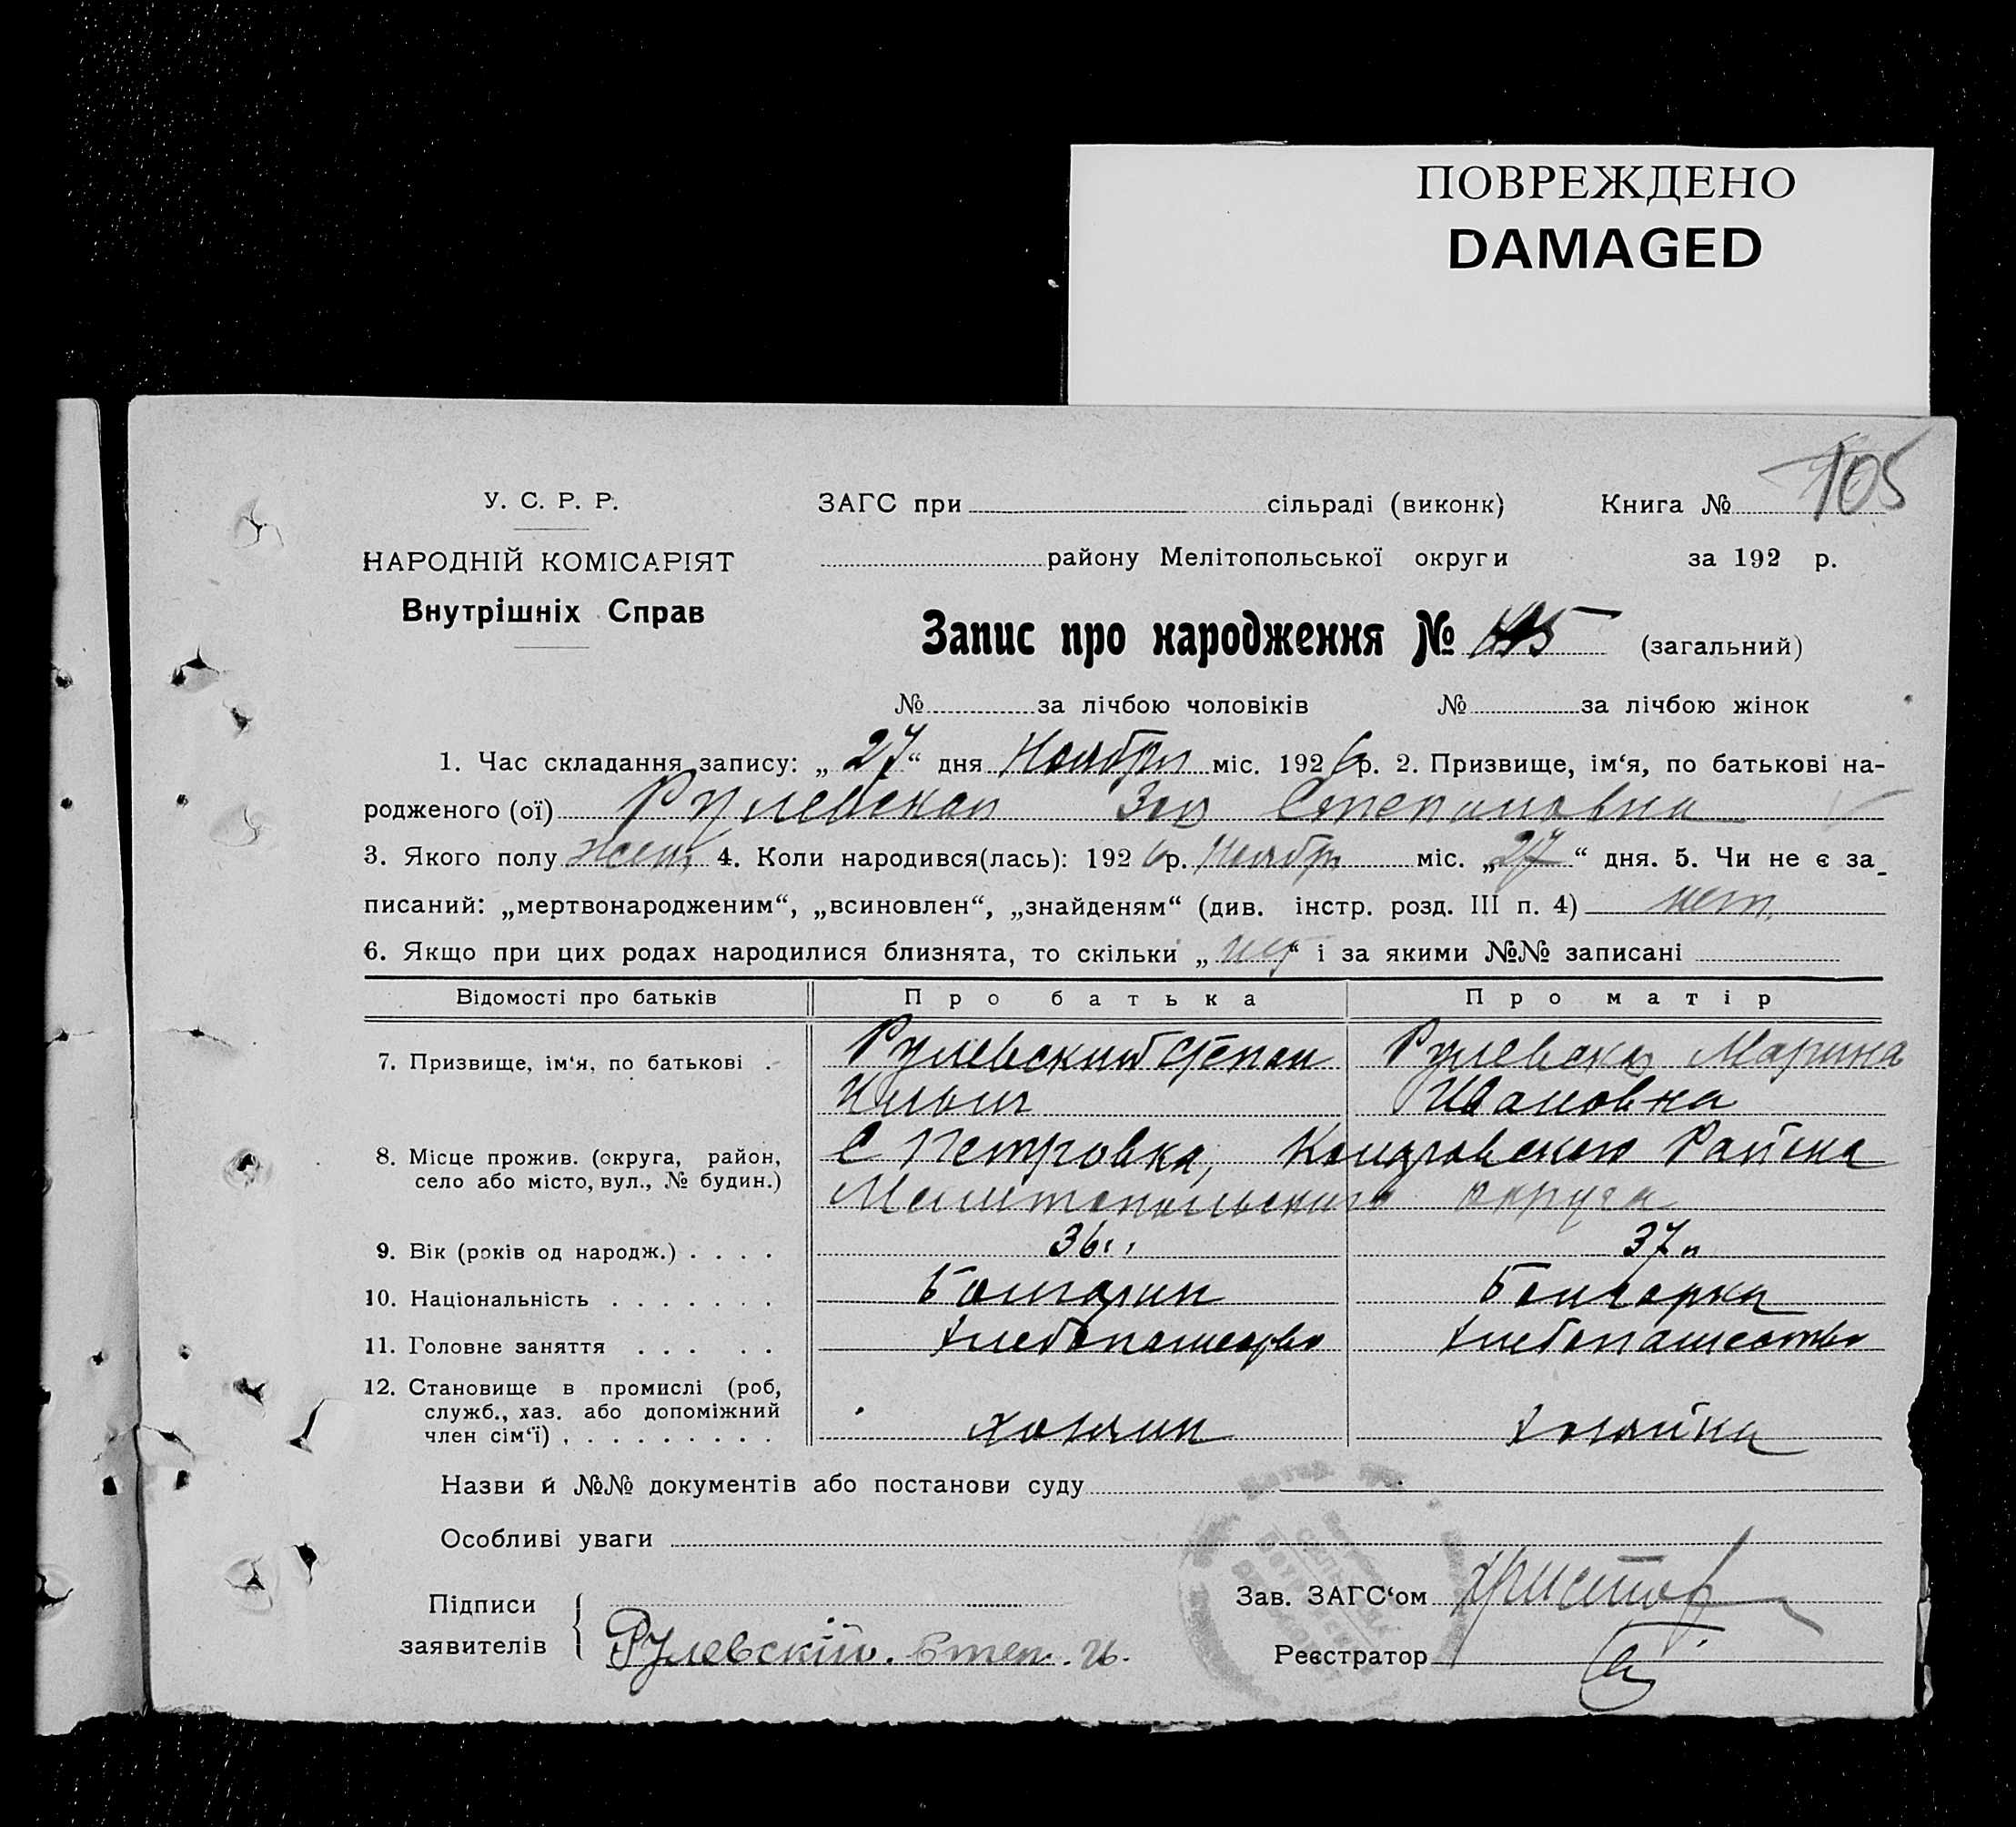 ПОВРЕЖДЕНО
DAMAGED
105
У. С. Р. Р.
ЗАГС при сільраді (виконк) Книга №
НАРОДНІЙ КОМІСАРІЯТ
району Мелітопольської округи за 192 р.
Внутрішніх Справ
Запис про народження № (загальний)
№ за лічбою чоловіків № за лічбою жінок
1. Час складання запису: „27“ дня Ноября міс. 1926 р. 2. Призвище, ім‘я, по батькові на-
родженого (ої) Рулевская Зоя Степановна
3. Якого полу жен 4. Коли народився(лась): 1926 р. Ноября міс. „27“ дня. 5. Чи не є за_
писаний: „мертвонародженим“, „всиновлен“, „знайденям“ (див. інстр. розд. III п. 4) нет
6. Якщо при цих родах народилися близнята, то скільки „нет“ і за якими №№ записані
Відомості про батьків Про батька Про матір
7. Призвище, ім‘я, по батькові . Рулевский Степан Рулевская Марина
Ильич Ивановна
8. Місце прожив. (округа, район, С Петровка, Района
село або місто, вул., № будин.) Мелитопольского округа
9. Вік (років од народж.) . . . . 36 37
10. Національність . . . . . . . Болгарин Болгарка
11. Головне заняття . . . . . Хлебопашество Хлебопашество
12. Становище в промислі (роб,
служб., хаз. або допоміжний
член сім‘ї) . . . . . . . . . хозяин хозяйка
Назви й №№ документів або постанови суду
Особливі уваги
Підписи
заявителів Рулевскій. Степ. И.
Зав. ЗАГС‘ом Христов
Реєстратор